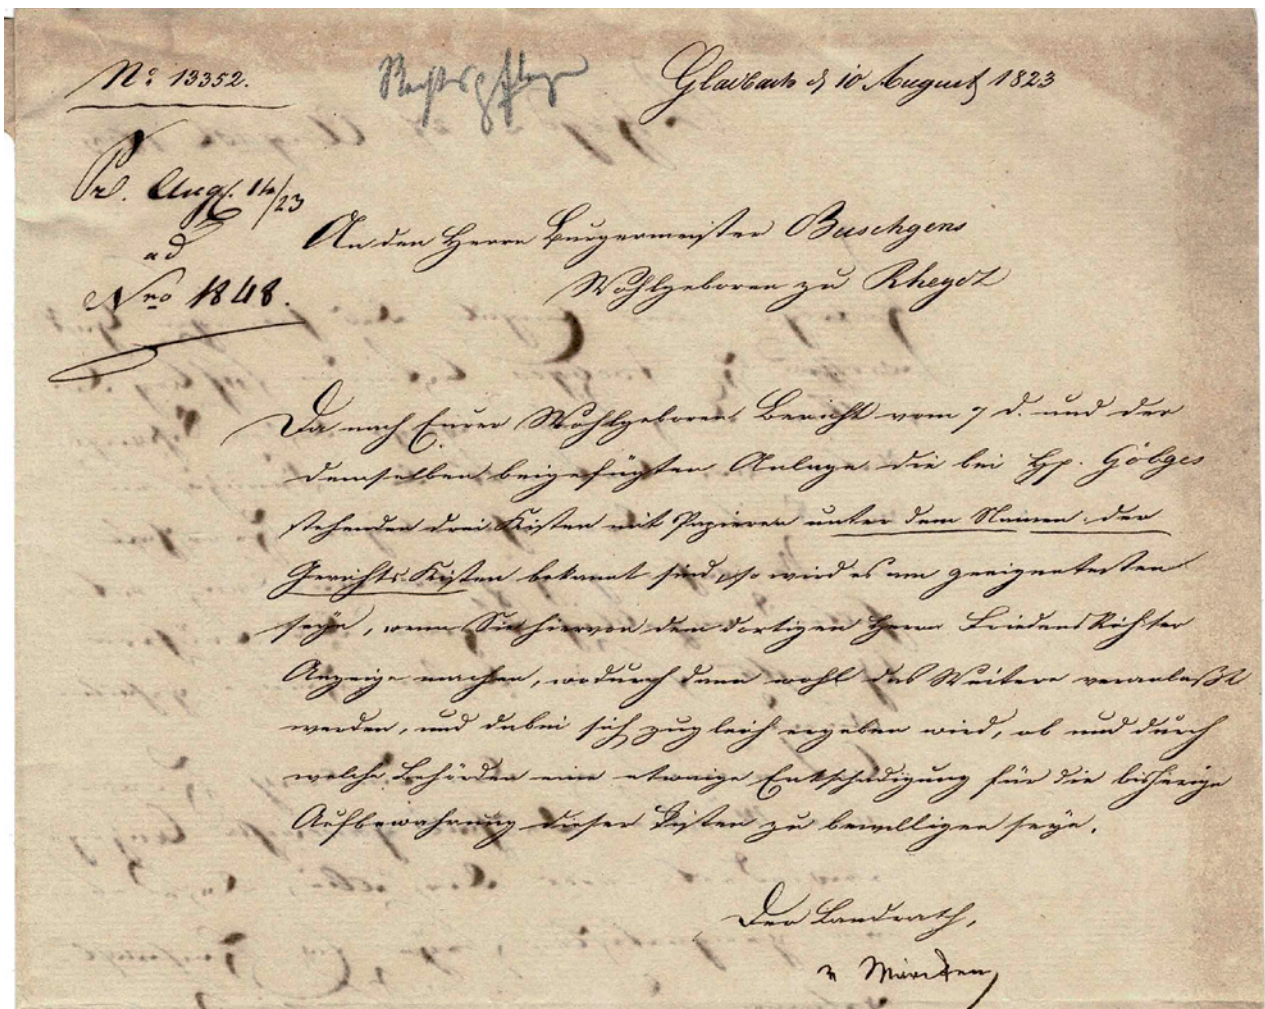 No 13352.
Rechtspflege
Gladbach d 10 August 1823
Pr. Aug. 14/23
ad
Nro 1848.
An den Herrn Burgermeister Buschgens
Wohlgeboren zu Rheydt
Da nach Eurer Wohlgeboren Bericht vom 7 d. und der
demselben beigefügten Anlage die bei Hp. Göbges
stehenden drei Kisten mit Papieren unter dem Namen der
Gerichts Kisten bekannt sind, so wird es am geeignetesten
seyn, wenn Sie hiervon dem dortigen Herrn FriedensRichter
Anzeige machen, wodurch dann wohl das Weitere veranlaßt
werden, und dabei sich zugleich ergeben wird, ob und durch
welche Behörden eine etwaige Entschädigung für die bisherige
Aufbewahrung dieser Kisten zu bewilligen seye.
Der Landrath,